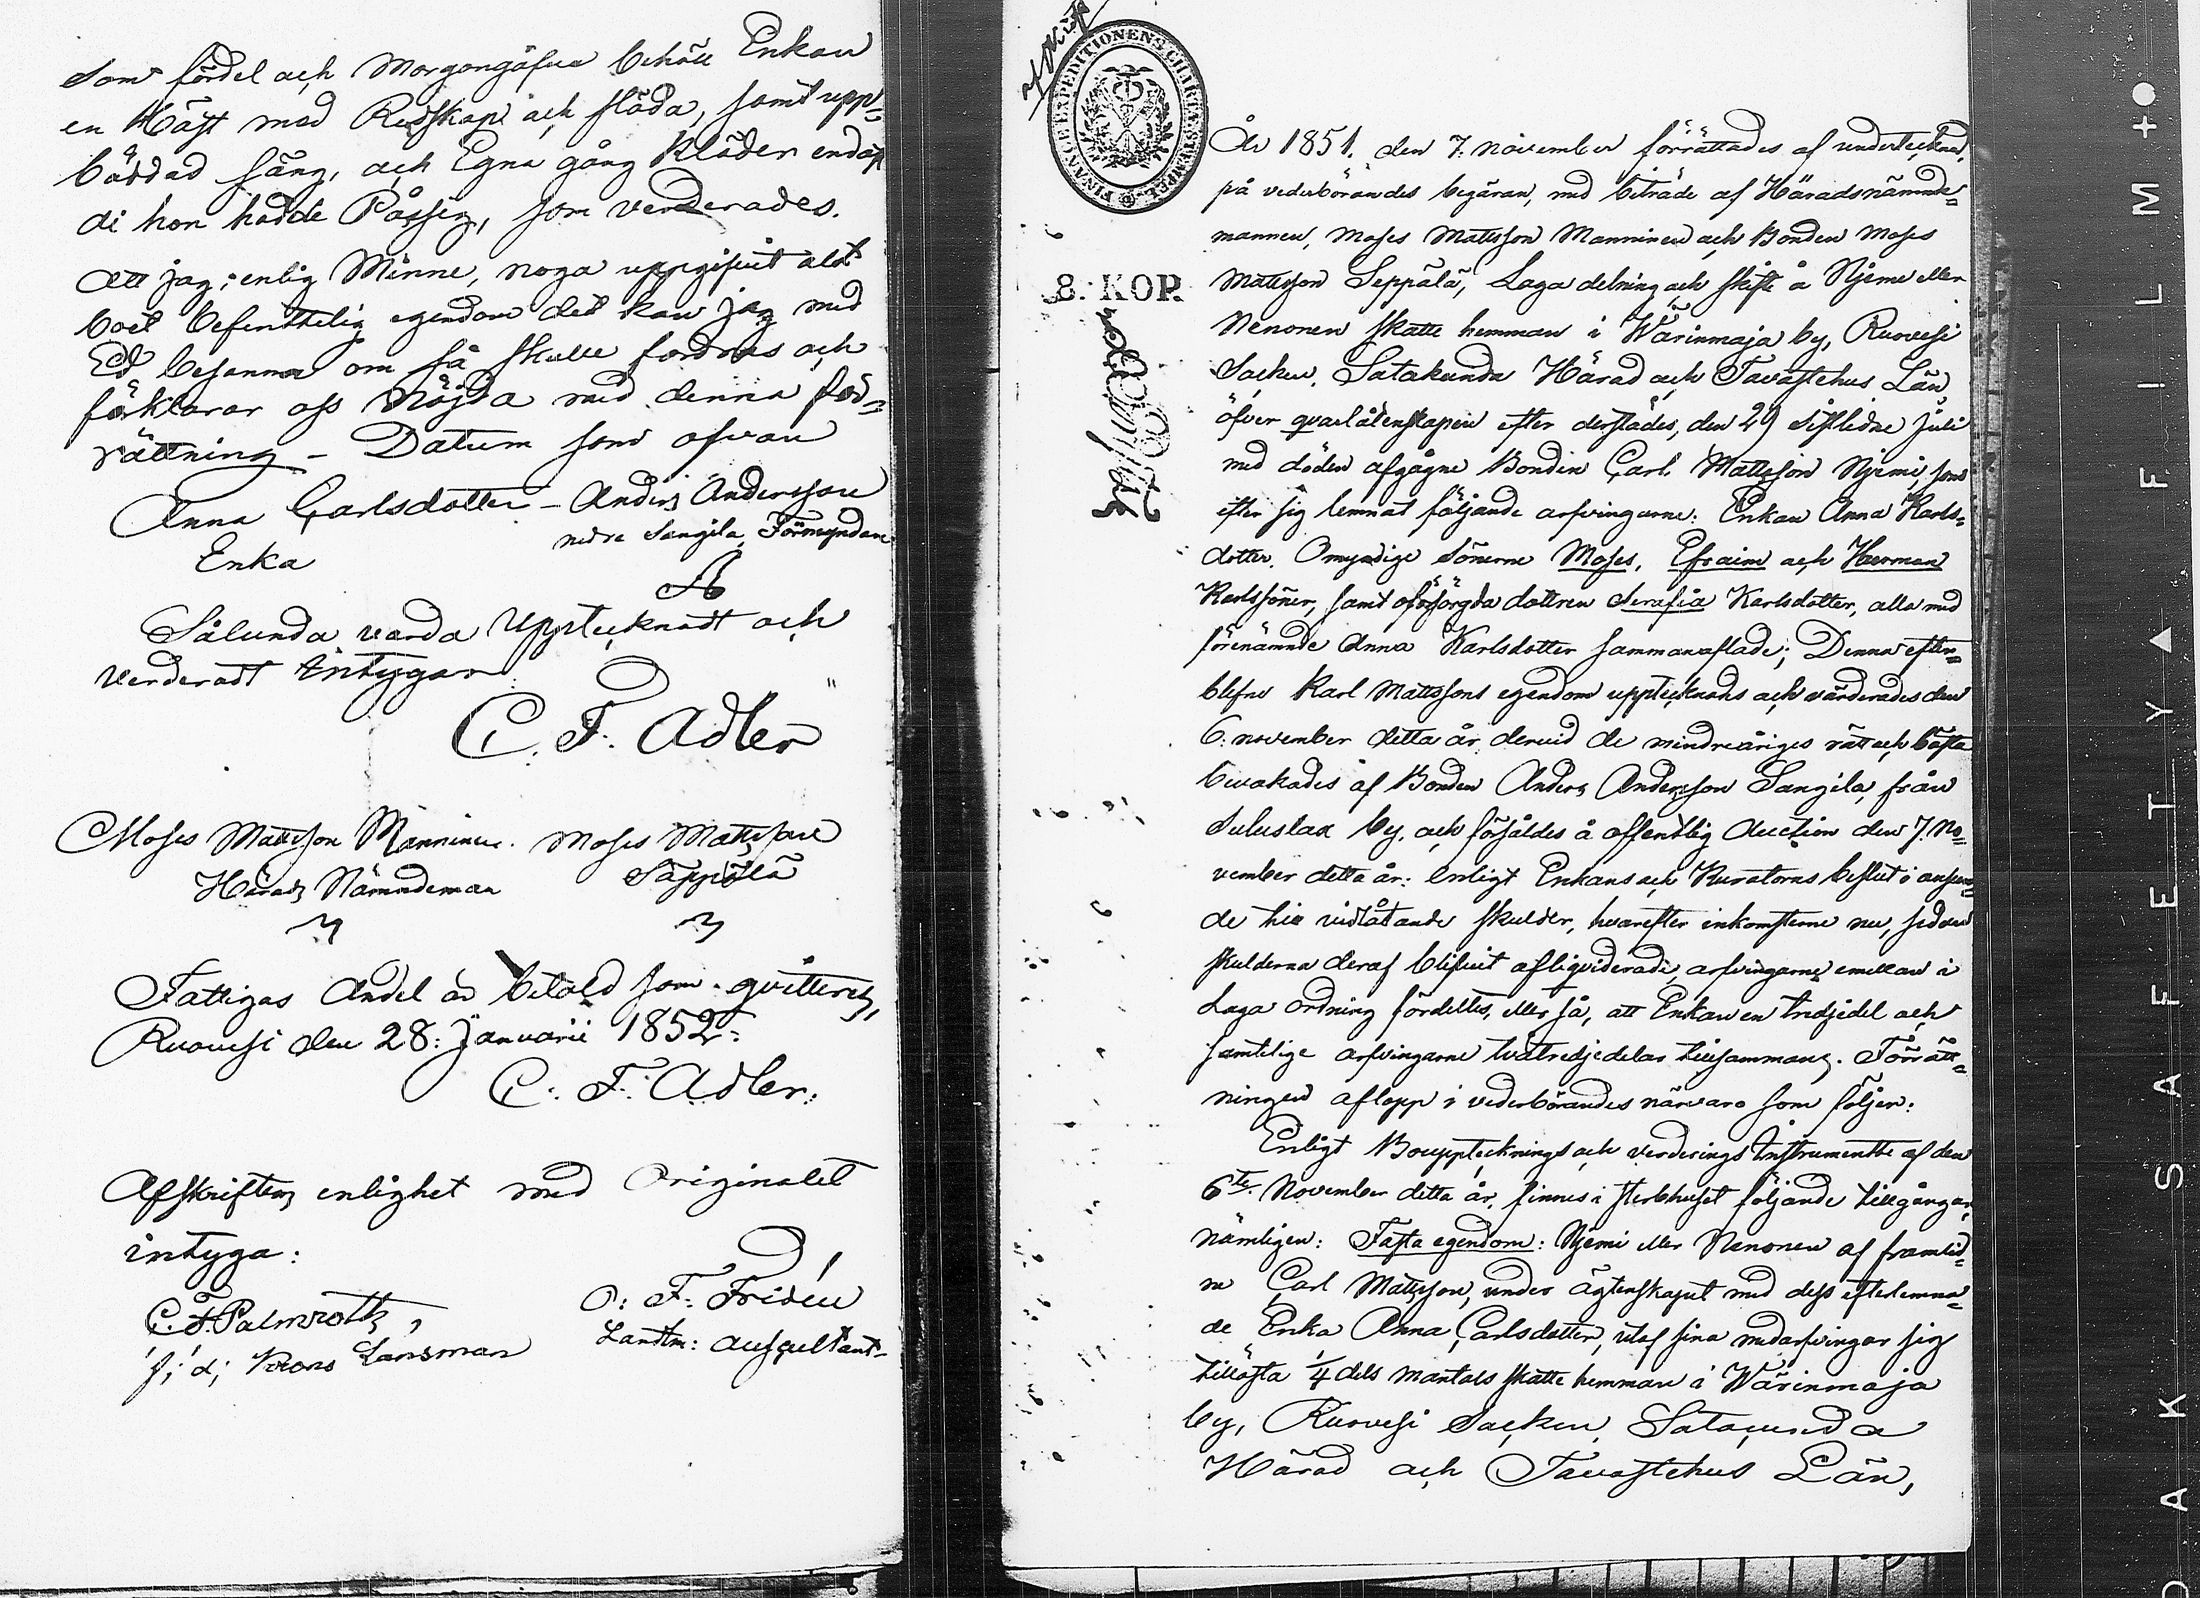 Som fördel och Morgongåfva behöll Enkan
en Häst med Redskap och släda, samt upp=
bäddad säng, och Egna gång kläder endast
di hon hadde På sig, som verderades.
Att jag, enlig Minne, noga uppgifvit alt
boet befinttelig egendom det kan jag med
Ed besanna om så skulle fordras och
förklarar oss Nöjda med denna för=
rättning – Datum som ofvan
Anna Carlsdotter – Anders Andersson
Enka nedre Sangila, Förmyndare
Sålunda varda Upptecknadt och
Verderadt intygar
C. F. Adler
Moses Mattsson Manninen. Moses Mattsson
Härads Nämndeman Säppälä
Fattigas Andel är betald som qvitteras,
Ruovesi den 28: Januarii 1852:
C: F: Adler:
Afskriftens enlighet med Originalet
intyga:
C. F. Palmroth, O: F: Fridén
f; d; Krons Länsman Landtm: Auscultant
FINANCE EXPEDITIONENS CHARTA STEMPEL
8. KOP.
År 1851. den 7: november förrättades af undertecknad,
på vederbörandes begäran, med biträde af Häradsnämnde=
mannen, Moses Mattsson Manninen och Bonden Moses
Mattsson Seppälä, Laga delning och skifte å Njemi eller
Nenonen skatte hemman i Wärinmaja by, Ruovesi
Socken, Satakunda Härad och Tavastehus Län,
öfver qvarlåtenskapen efter derstädes, den 29 sistledne Juli
med döden afgågne Bonden Carl Mattsson Njemi, som
efter sig lemnat följande arfvingarne: Enkan Anna Karls=
dotter, Omyndige Sönerne Moses, Efraim och Herman
Karlssöner, samt oförsörgda dottren Serafia Karlsdotter, alla med
förenämnde Anna Karlsdotter sammanaflade; Denna efter=
blefne Karl Mattssons egendom upptecknades och värderades den
6: november detta år, dervid de mindreåriges rätt och bästa
bevakades af Bonden Anders Andersson Sangila, från
Suluslax by, och försåldes å offentlig Auction den 7. No=
vember detta år: enligt Enkans och Kuratorns beslut i anseen=
de til vidlåtande skulder, hvarefter inkomsterne nu, sedan
skulderna deraf blifvit afliqviderade, arfvingarne emellan i
Laga ordning fördeltes, eller så, att Enkan en tredjedel och
samtelige arfvingarne tvåtredjedelar tillsammans. Förrätt=
ningen aflopp i vederbörandes närvaro som följer:
Enligt Bouppteckningsoch verderings Instrumentte af den
6te November detta år, finnes i sterbhuset följande tillgångar,
nämligen: Fasta egendom: Njemi eller Nenonen af framlid=
ne Carl Mattsson, under ägtenskapet med dess efterlemna=
de Enka Anna Carlsdotter, utaf sina medarfvingar sig
tillösta 1/4 dels mantals skatte hemman i Wärinmaja
by, Ruovesi Socken, Satacunda
Härad och Tavastehus Län,
A K S A F E T Y ▲ F I L M